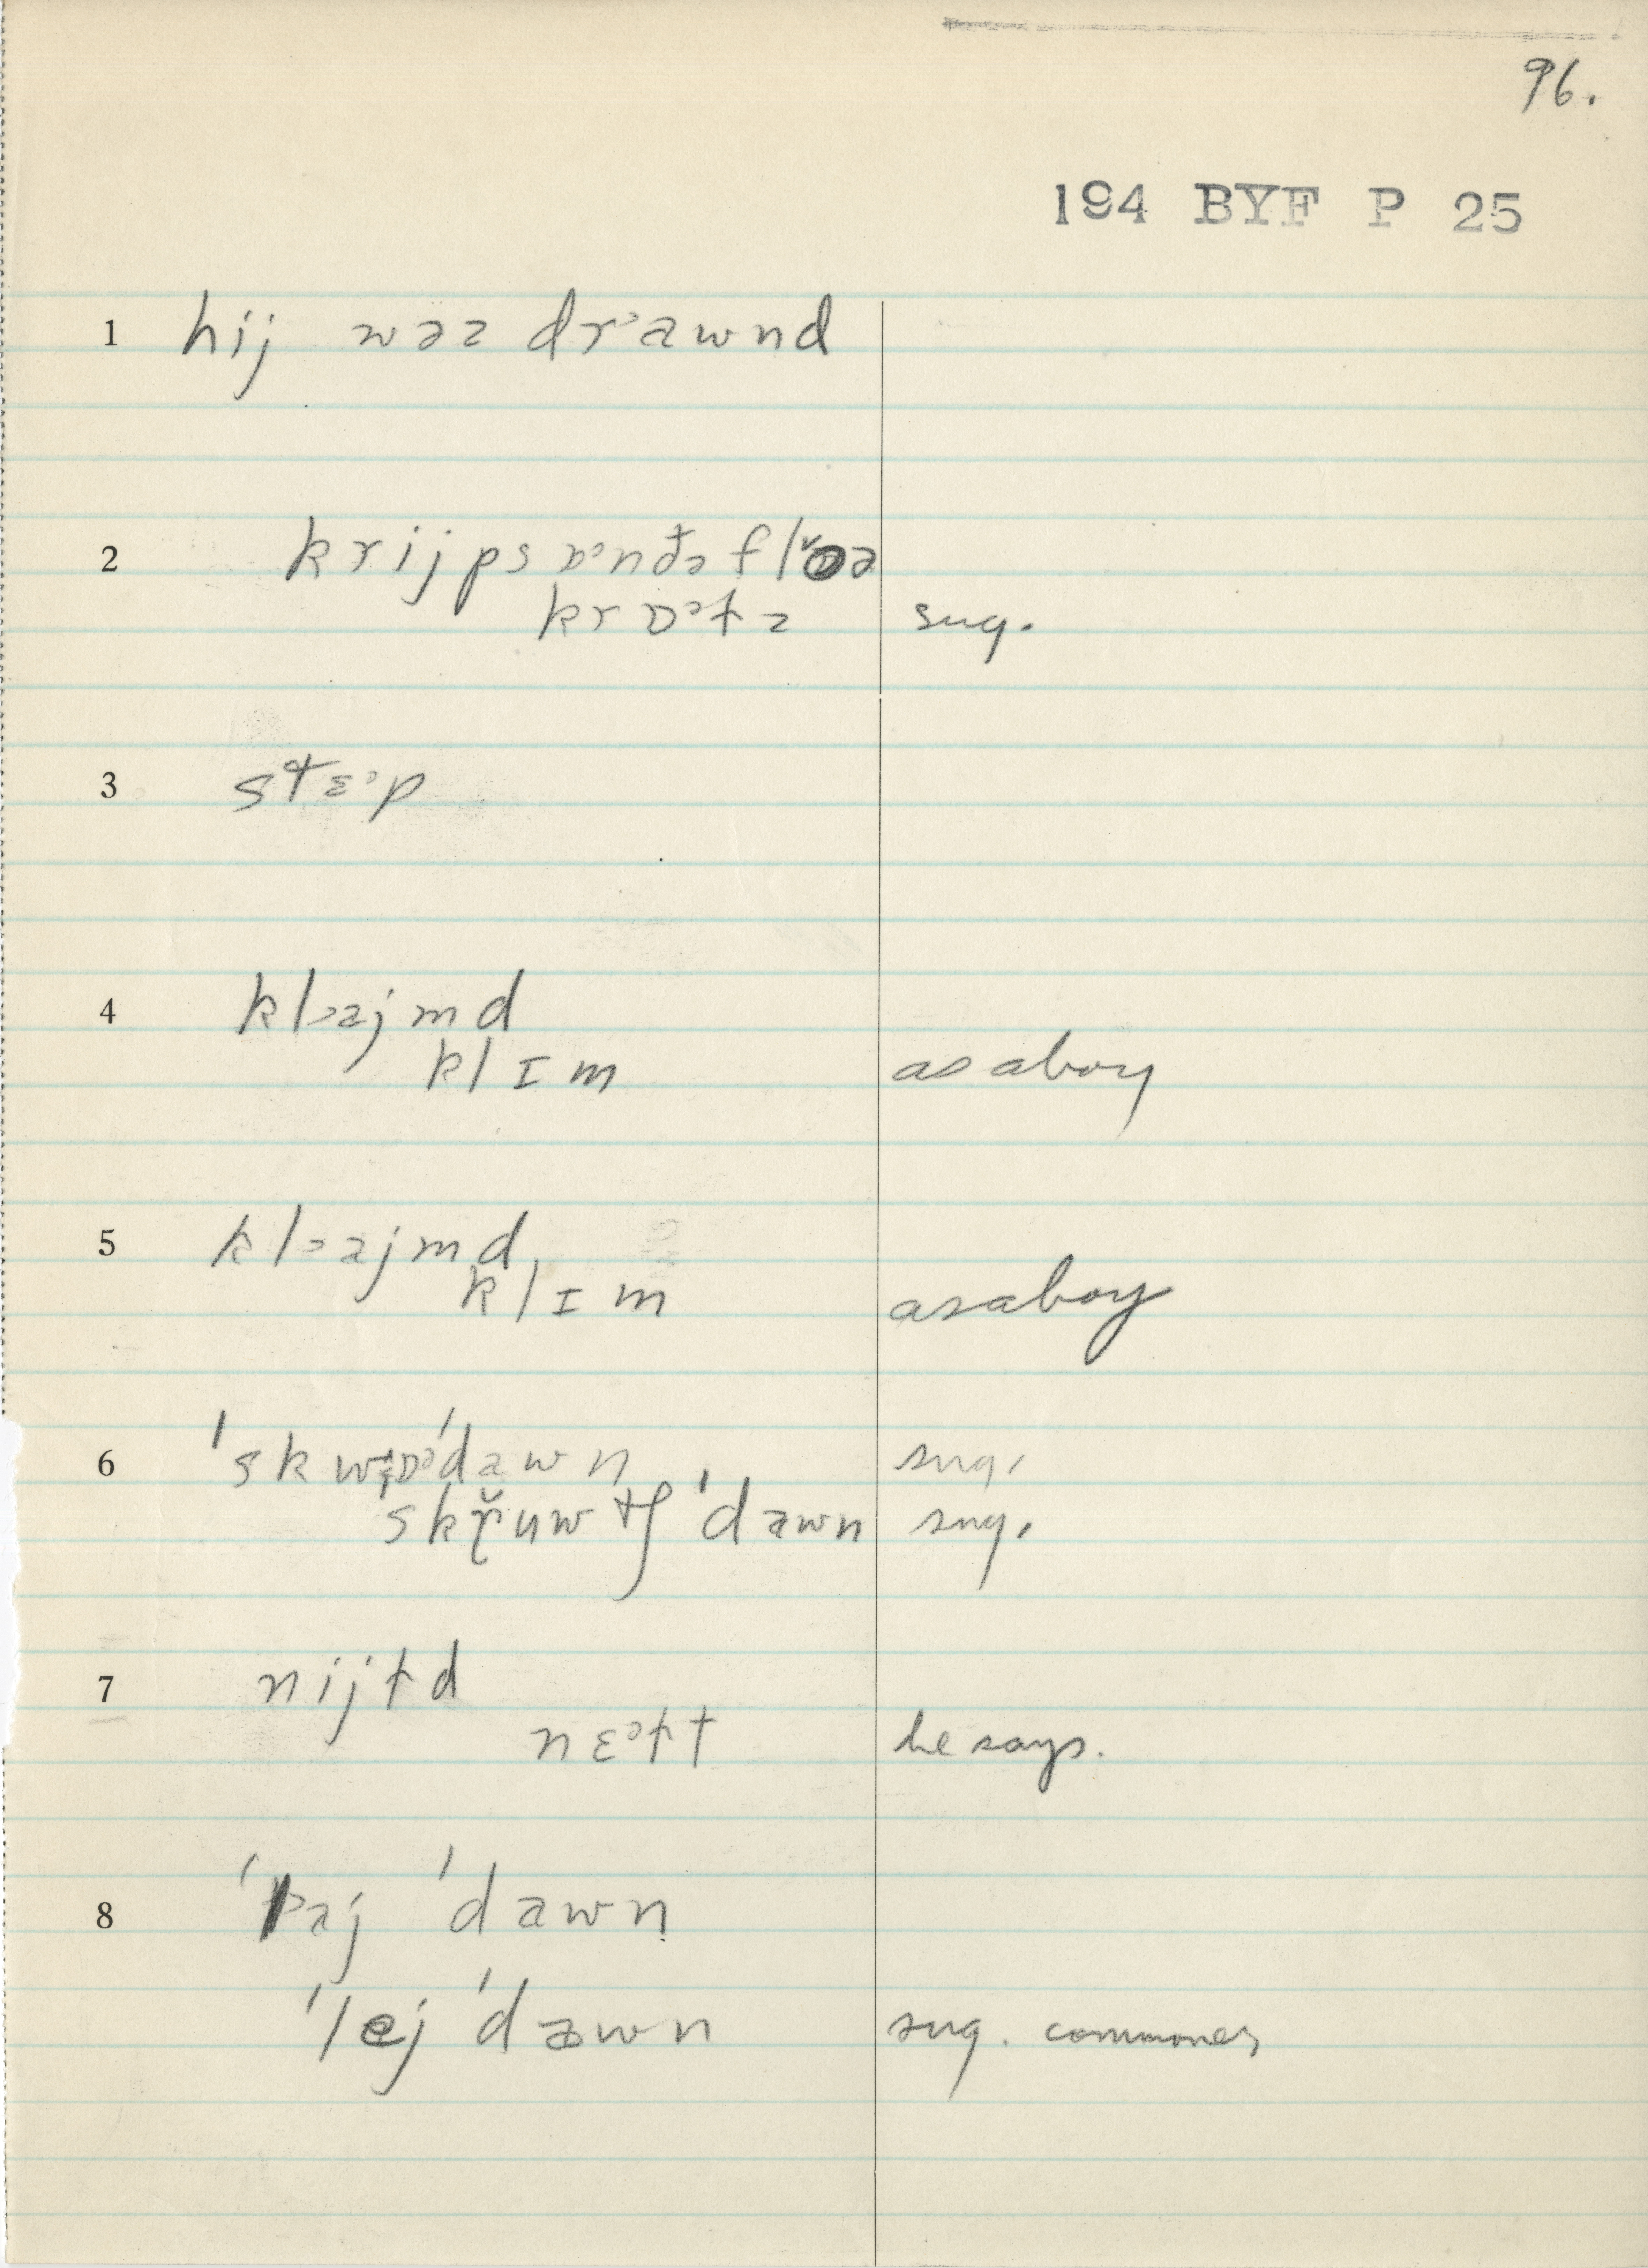 96.
194 BYF P 25
1 hij wəz drᵊawnd
2 krijps ɒᵊnðə flɔ̆ə
krɒᵊtz sug.
3 stɛᵊp
4 klᵊajmd
klɪm as a boy
5 klᵊajmd
klɪm as a boy
6 ˈdawn sug.
skr̆uwtʃ ˈdawn sug.
7 nijtd
nɛᵊtt he says.
8 ˈlᵊaj ˈdawn
ˈlej ˈdawn sug. commoner